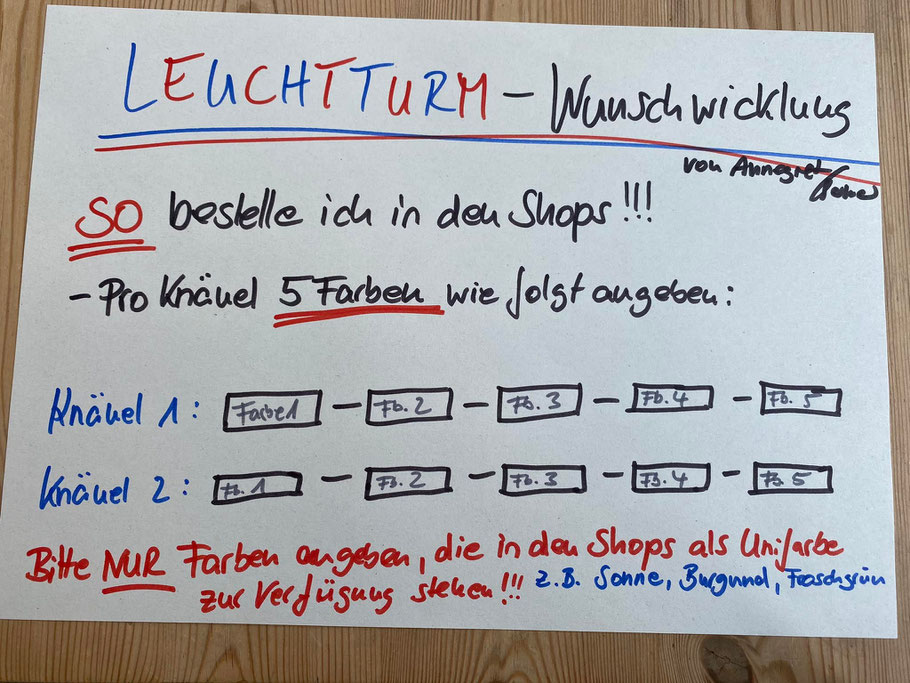 LEUCHTTURM - Wunschwicklung
von Annegret
SO bestelle ich in den Shops!!!
- Pro Knäuel 5 Farben wie folgt angeben:
Knäuel 1: Farbe 1 - Fb. 2 - Fb. 3 - Fb. 4 - Fb. 5
Knäuel 2: Fb. 1 - Fb. 2 - Fb. 3 - Fb. 4 - Fb. 5
Bitte NUR Farben angeben, die in den Shops als Unifarbe
zur Verfügung stehen!!! z.B. Sonne, Burgund, Froschgrün